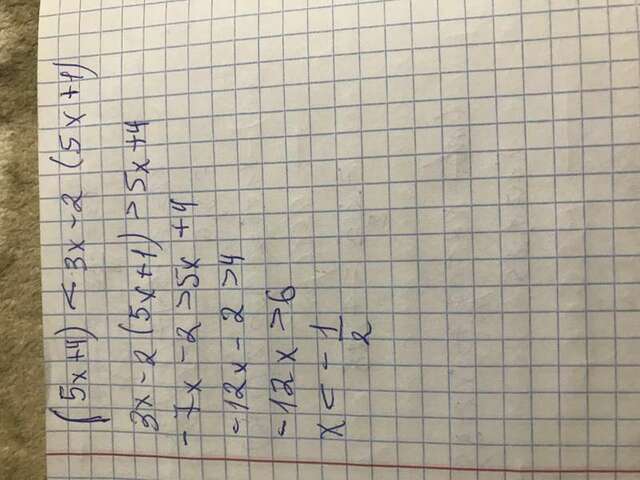 (5x+4) < 3x-2 (5x+1)
3x-2(5x+1)>5x+4
-7x-2>5x+4
-12x-2>4
-12x>6
x<-1/2